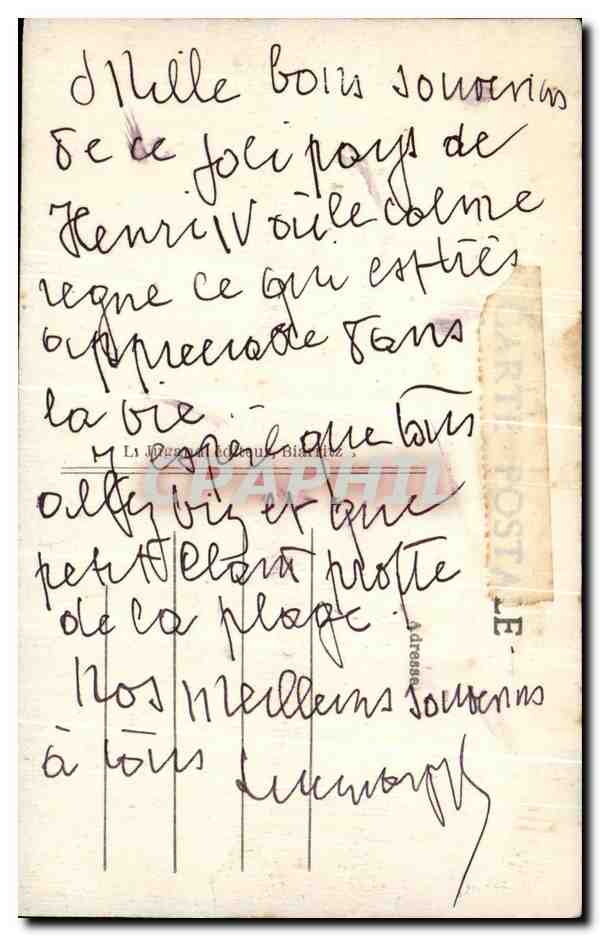 Mille bons souvenirs
de ce joli pays de
Henri IV où le calme
regne ce qui est très
appreciable dans
la vie.
L. Jugand éditeur, Biarritz
J'espère que tous
allez bien et que
CPAPHIL
petit profite
de la plage.
Nos meilleurs souvenirs
à tous
CARTE POSTALE
Adresse